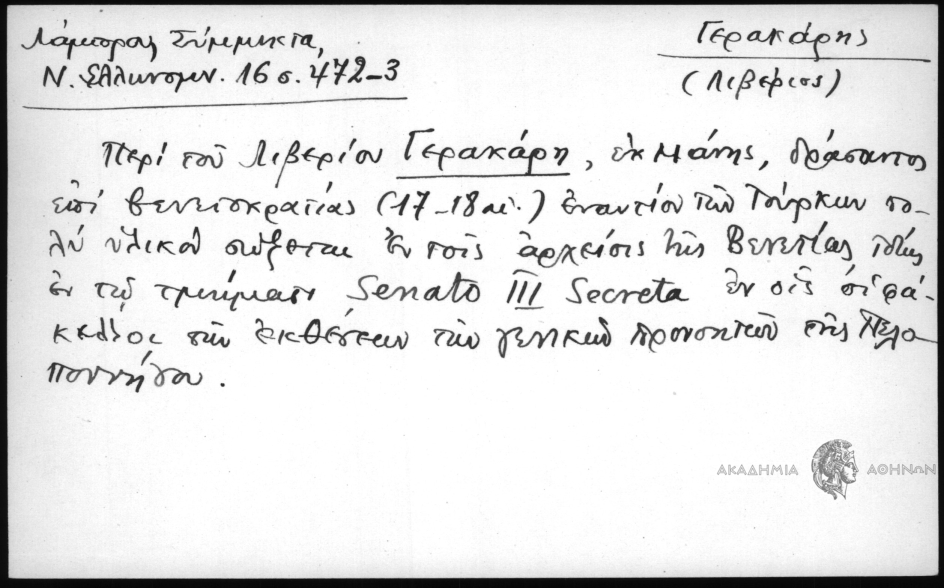 Λάμπρου Σύμμικτα,
Ν. Ἑλληνομν. 16 σ. 472-3
Γερακάρης
(Λιβέριος)
Περί τοῦ Λιβερίου Γερακάρη, ἐκ Μάνης, δράσαντος
ἐπί Βενετοκρατίας (17-18 αἰ.) ἐναντίον τῶν Τούρκων πο-
λύ ὑλικόν σώζεται ἐν τοῖς ἀρχείοις τῆς Βενετίας ἰδίως
ἐν τῷ τμήματι Senato III Secreta ἐν οἷς οἱ φά-
κελλοι τῶν ἐκθέσεων τῶν γενικῶν προνοητῶν τῆς Πελο-
ποννήσου.
ΑΚΑΔΗΜΙΑ ΑΘΗΝΩΝ